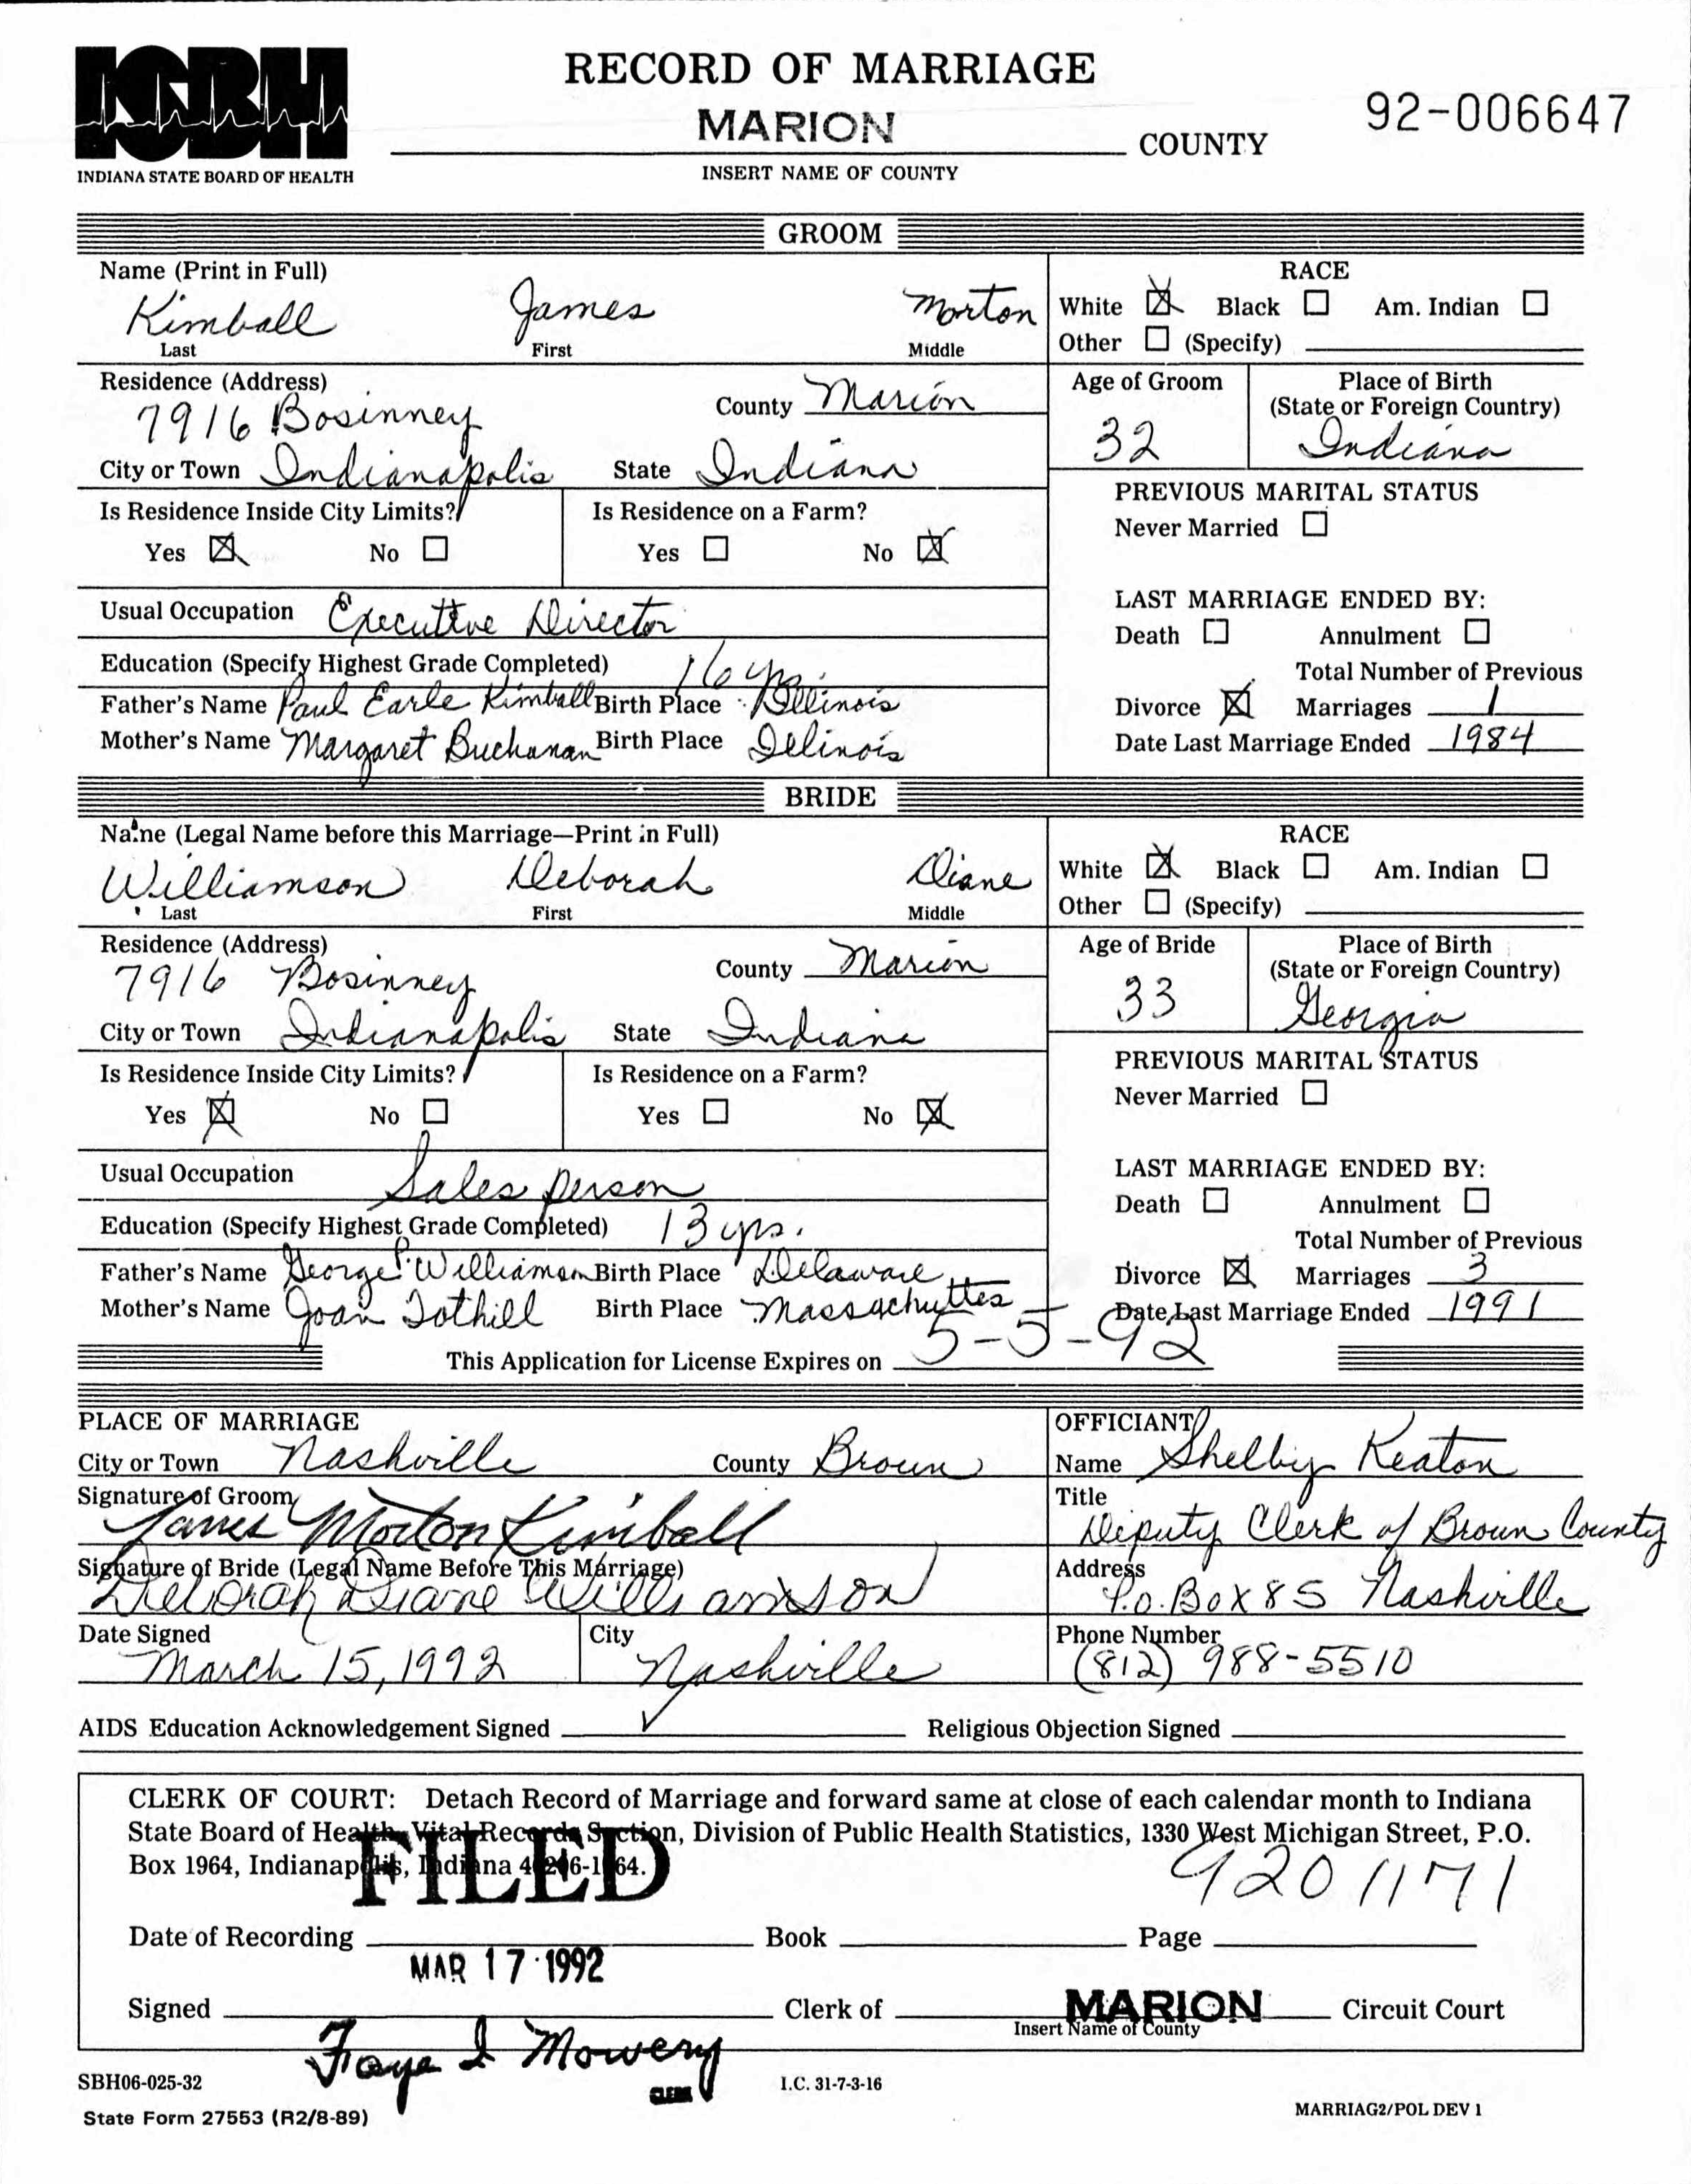 ISBH
INDIANA STATE BOARD OF HEALTH
RECORD OF MARRIAGE
MARION COUNTY
INSERT NAME OF COUNTY
92-006647
GROOM
Name (Print in Full)
Kimball James Morton
Last First Middle
RACE
White ☒ Black ☐ Am. Indian ☐
Other ☐ (Specify)
Residence (Address)
7916 Bosinney County Marion
City or Town Indianapolis State Indiana
Age of Groom
32
Place of Birth
(State or Foreign Country)
Indiana
Is Residence Inside City Limits? Is Residence on a Farm?
Yes ☒ No ☐ Yes ☐ No ☒
Usual Occupation Executive Director
Education (Specify Highest Grade Completed) 16 yrs.
Father's Name Paul Earle Kimball Birth Place Illinois
Mother's Name Margaret Buchanan Birth Place Illinois
PREVIOUS MARITAL STATUS
Never Married ☐
LAST MARRIAGE ENDED BY:
Death ☐ Annulment ☐
Total Number of Previous
Divorce ☒ Marriages 1
Date Last Marriage Ended 1984
BRIDE
Name (Legal Name before this Marriage—Print in Full)
Williamson Deborah Diane
Last First Middle
RACE
White ☒ Black ☐ Am. Indian ☐
Other ☐ (Specify)
Residence (Address)
7916 Bosinney County Marion
City or Town Indianapolis State Indiana
Age of Bride
33
Place of Birth
(State or Foreign Country)
Georgia
Is Residence Inside City Limits? Is Residence on a Farm?
Yes ☒ No ☐ Yes ☐ No ☒
Usual Occupation Sales person
Education (Specify Highest Grade Completed) 13 yrs.
Father's Name George P. Williamson Birth Place Delaware
Mother's Name Joan Tothill Birth Place Massachuttes
PREVIOUS MARITAL STATUS
Never Married ☐
LAST MARRIAGE ENDED BY:
Death ☐ Annulment ☐
Total Number of Previous
Divorce ☒ Marriages 3
Date Last Marriage Ended 1991
This Application for License Expires on 5-5-92
PLACE OF MARRIAGE
City or Town Nashville County Brown
Signature of Groom
James Morton Kimball
Signature of Bride (Legal Name Before This Marriage)
Deborah Diane Williamson
Date Signed City
March 15, 1992 Nashville
OFFICIANT
Name Shelby Keaton
Title
Deputy Clerk of Brown County
Address
P.O. Box 85 Nashville
Phone Number
(812) 988-5510
AIDS Education Acknowledgement Signed ✓ Religious Objection Signed
CLERK OF COURT: Detach Record of Marriage and forward same at close of each calendar month to Indiana
State Board of Health, Vital Records Section, Division of Public Health Statistics, 1330 West Michigan Street, P.O.
Box 1964, Indianapolis, Indiana 46206-1964.
FILED
9201171
Date of Recording Book Page
MAR 17 1992
Signed Clerk of MARION Circuit Court
Insert Name of County
Faye I Mowery
CLERK
SBH06-025-32 I.C. 31-7-3-16
State Form 27553 (R2/8-89) MARRIAG2/POL DEV 1